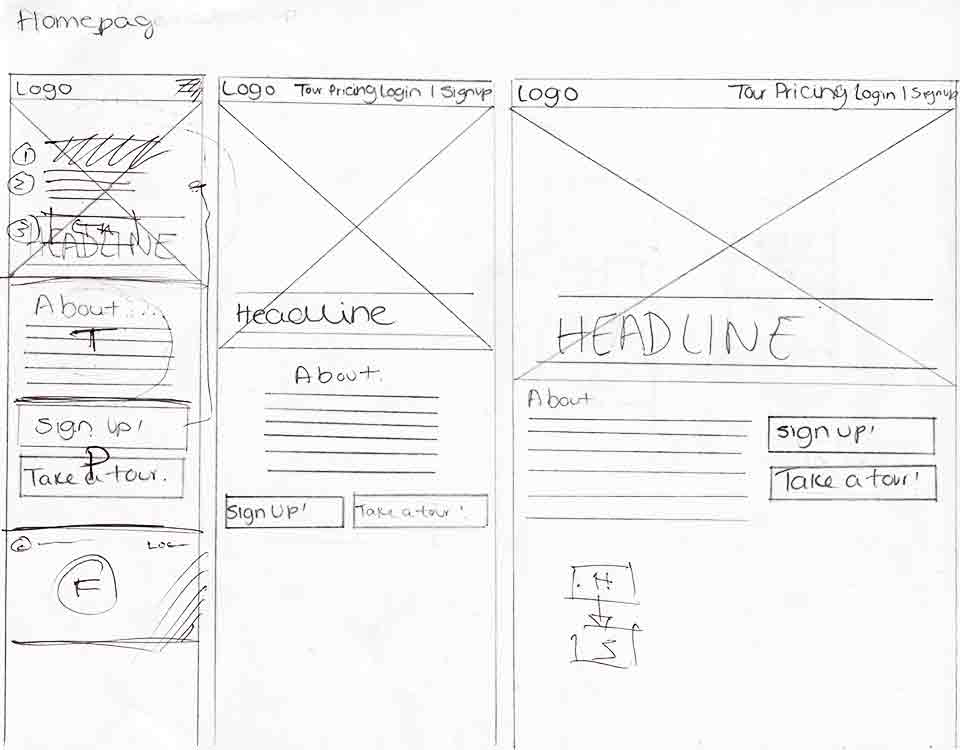 Homepage
Logo
1
2
3
CTA
HEADLINE
About
T
Sign up!
P
Take a tour.
F
Logo Tour Pricing Login | Signup
Headline
About.
Sign Up!
Take a tour!
Logo Tour Pricing Login | Signup
HEADLINE
About
sign up!
Take a tour!